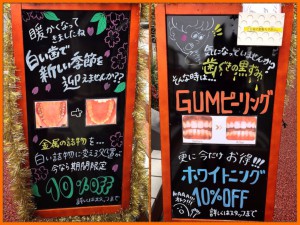 暖かくなって
きましたね
白い歯で
新しい季節を
迎えませんか??
金属の詰物を…
白い詰物に変える処置が
今なら期間限定
10%OFF
詳しくはスタッフまで
気になっていませんか?
歯ぐきの黒ずみ
そんな時は…
GUMピーリング
更に今だけお得!!!
ホワイトニング
10%OFF
詳しくはスタッフまで